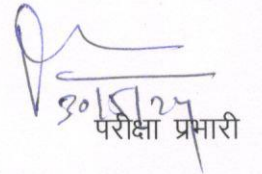 30/5/24
परीक्षा प्रभारी